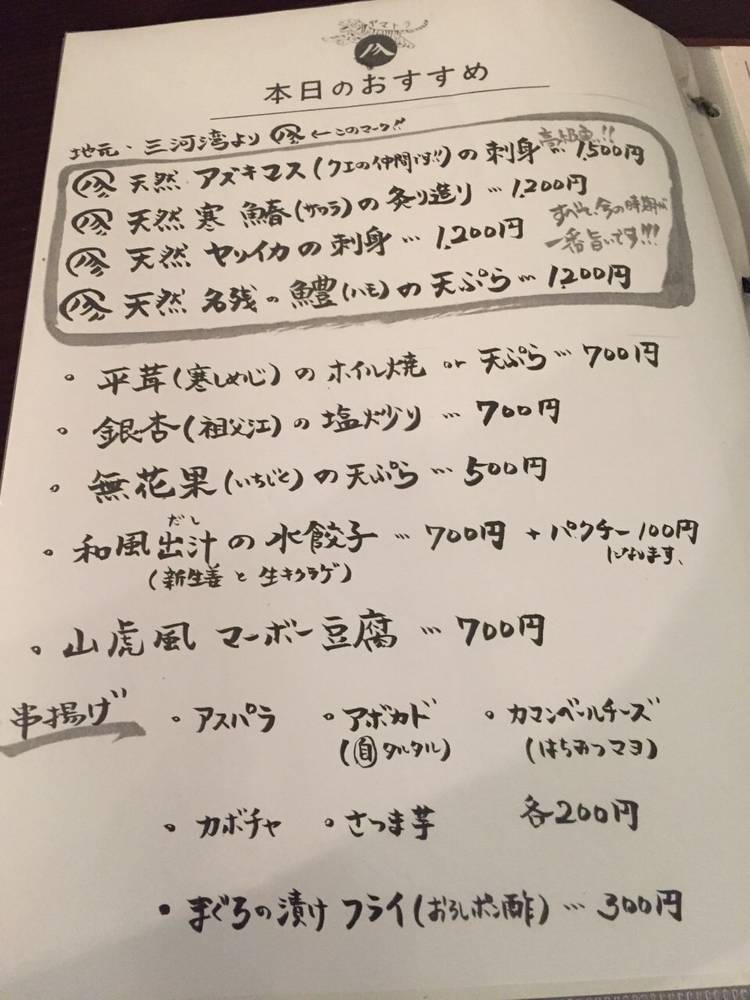 ヤマトラ
本日のおすすめ
地元・三河湾より ←このマーク!!
天然 アズキマス(クエの仲間です!!)の刺身 … 1,500円
高級魚!!
天然 寒 鰆(サワラ)の炙り造り … 1,200円
天然 ヤリイカの刺身 … 1,200円
すべて、今の時期が
一番旨いです!!!
天然 名残の鱧(ハモ)の天ぷら … 1,200円
・平茸(寒しめじ)のホイル焼 or 天ぷら … 700円
・銀杏(祖父江)の塩炒り … 700円
・無花果(いちじく)の天ぷら … 500円
・和風出汁の水餃子 … 700円 + パクチー100円
だし
(新生姜と生キクラゲ)
になります、
・山虎風 マーボー豆腐 … 700円
串揚げ ・アスパラ ・アボカド ・カマンベールチーズ
(自タルタル) (はちみつマヨ)
・カボチャ ・さつま芋 各200円
・まぐろの漬け フライ(おろしポン酢) … 300円